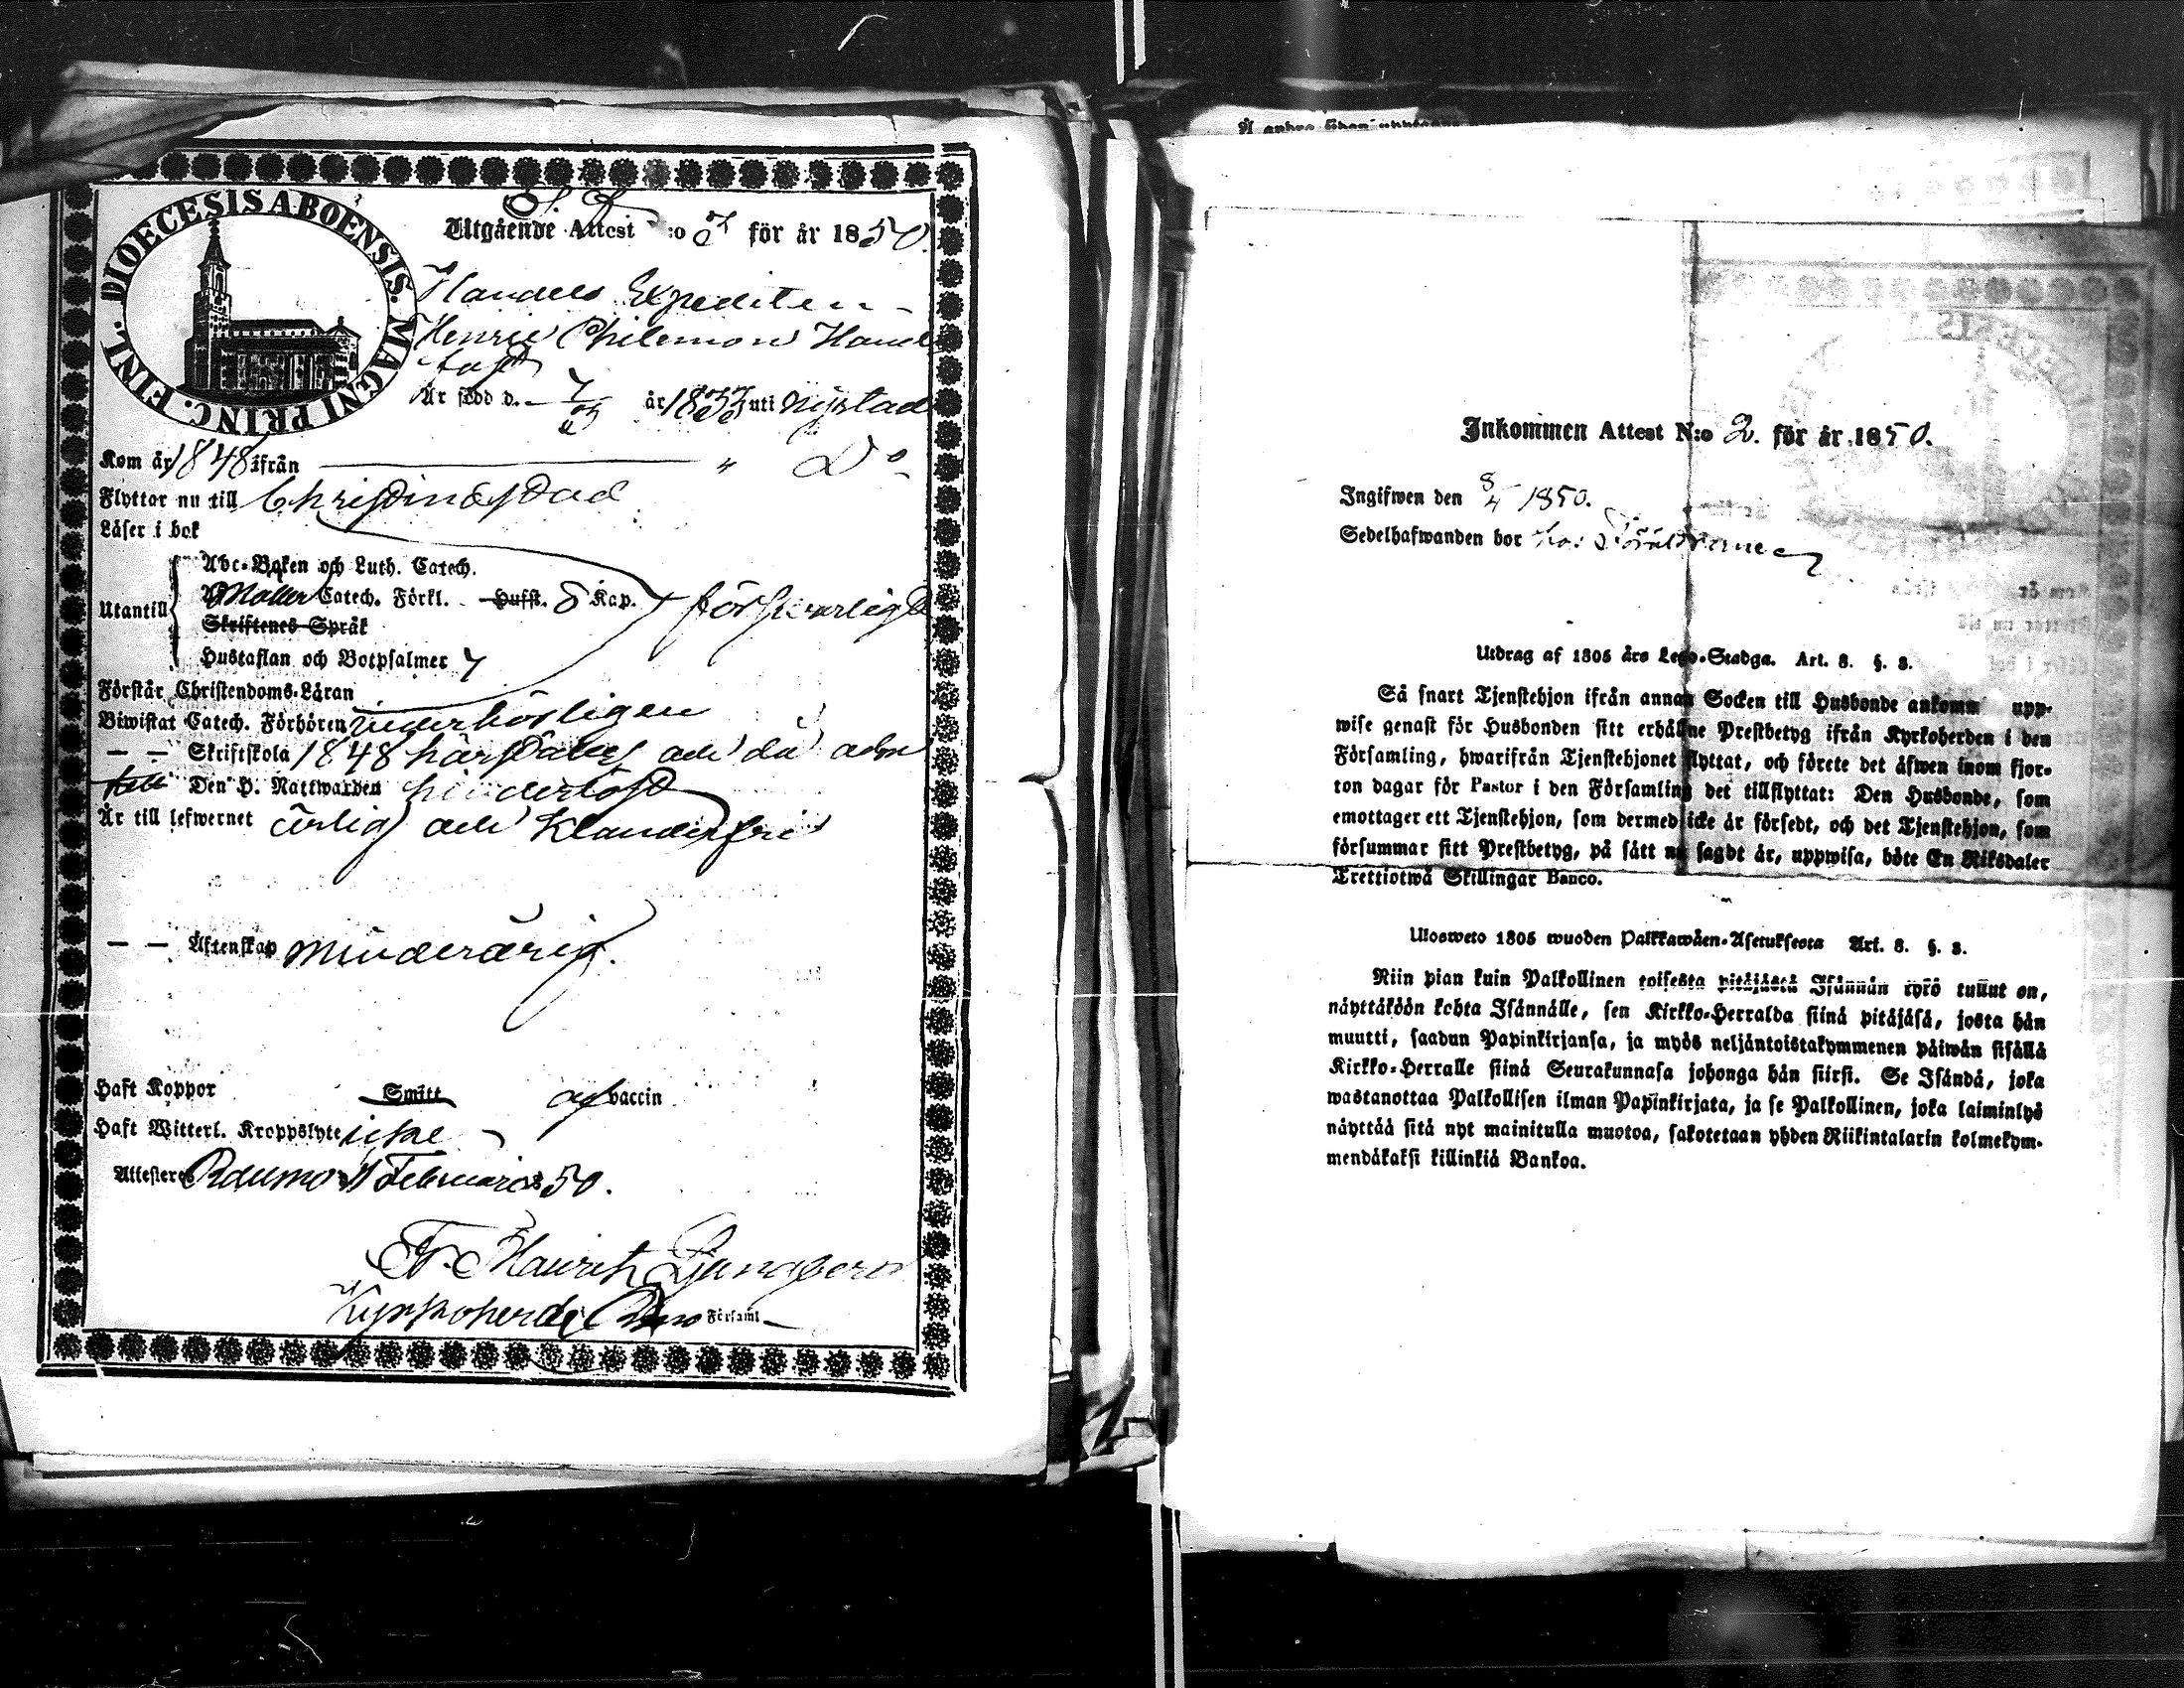 DIOECESIS ABOENSIS. MAGNI PRINC. FINL.
Utgående Attest för år 1850.
Handels Expediten
Henric Philemon
Är född d. år 1833 uti Nystad
Kom år 1848 ifrån " Do
Flyttar nu till Christinæstad
Läser i bok
Abc-Boken och Luth. Catech.
Utantill Catech. Förkl. Hufst. 8 Kap. försvarligt
Skriftenes Språk
Hustaflan och Botpsalmer 7
Förstår Christendoms-Läran
Biwistat Catech. Förhören vederbörligen
— — Skriftskola 1848 härstädes och då adm
Den H. Nattwarden hinderlöst
Är till lefwernet ärlig och klanderfri
— — Äktenskap minderårig.
Haft Koppor Smitt af vaccin
Haft Witterl. Kroppslyte icke
Attesteras Raumo Februari 1850.
Fr. Maurit Ljungberg
Kyrkoherde Församl.
Å andra sidan
Inkommen Attest N:o 2. för år 1850.
Ingifwen den 8/4 1850.
Sedelhafwanden bor hos Föräldrarne
Utdrag af 1805 års Lego-Stadga. Art. 8. §. 8.
Så snart Tjenstehjon ifrån annan Socken till Husbonde ankomm upp-
wise genast för Husbonden sitt erhållne Prestbetyg ifrån Kyrkoherden i den
Församling, hwarifrån Tjenstehjonet flyttat, och förete det äfwen inom fjor-
ton dagar för Pastor i den Församling det tillflyttat: Den Husbonde, som
emottager ett Tjenstehjon, som dermed icke är försedt, och det Tjenstehjon, som
försummar sitt Prestbetyg, på sätt nu sagdt är, uppwisa, böte En Riksdaler
Trettiotwå Skillingar Banco.
Ulosweto 1805 wuoden Palkkawäen-Asetuksesta Art. 8. §. 8.
Niin pian kuin Palkollinen toisesta pitäjästä Isännän työ tullut on,
näyttäköön kohta Isännälle, sen Kirkko-Herralda siinä pitäjäsä, josta hän
muutti, saadun Papinkirjansa, ja myös neljäntoistakymmenen päiwän sisällä
Kirkko-Herralle siinä Seurakunnasa johonga hän siirsi. Se Isändä, joka
wastanottaa Palkollisen ilman Papinkirjata, ja se Palkollinen, joka laiminlyö
näyttää sitä nyt mainitulla muotoa, sakotetaan yhden Riikintalarin kolmekym-
mendäkaksi killinkiä Bankoa.